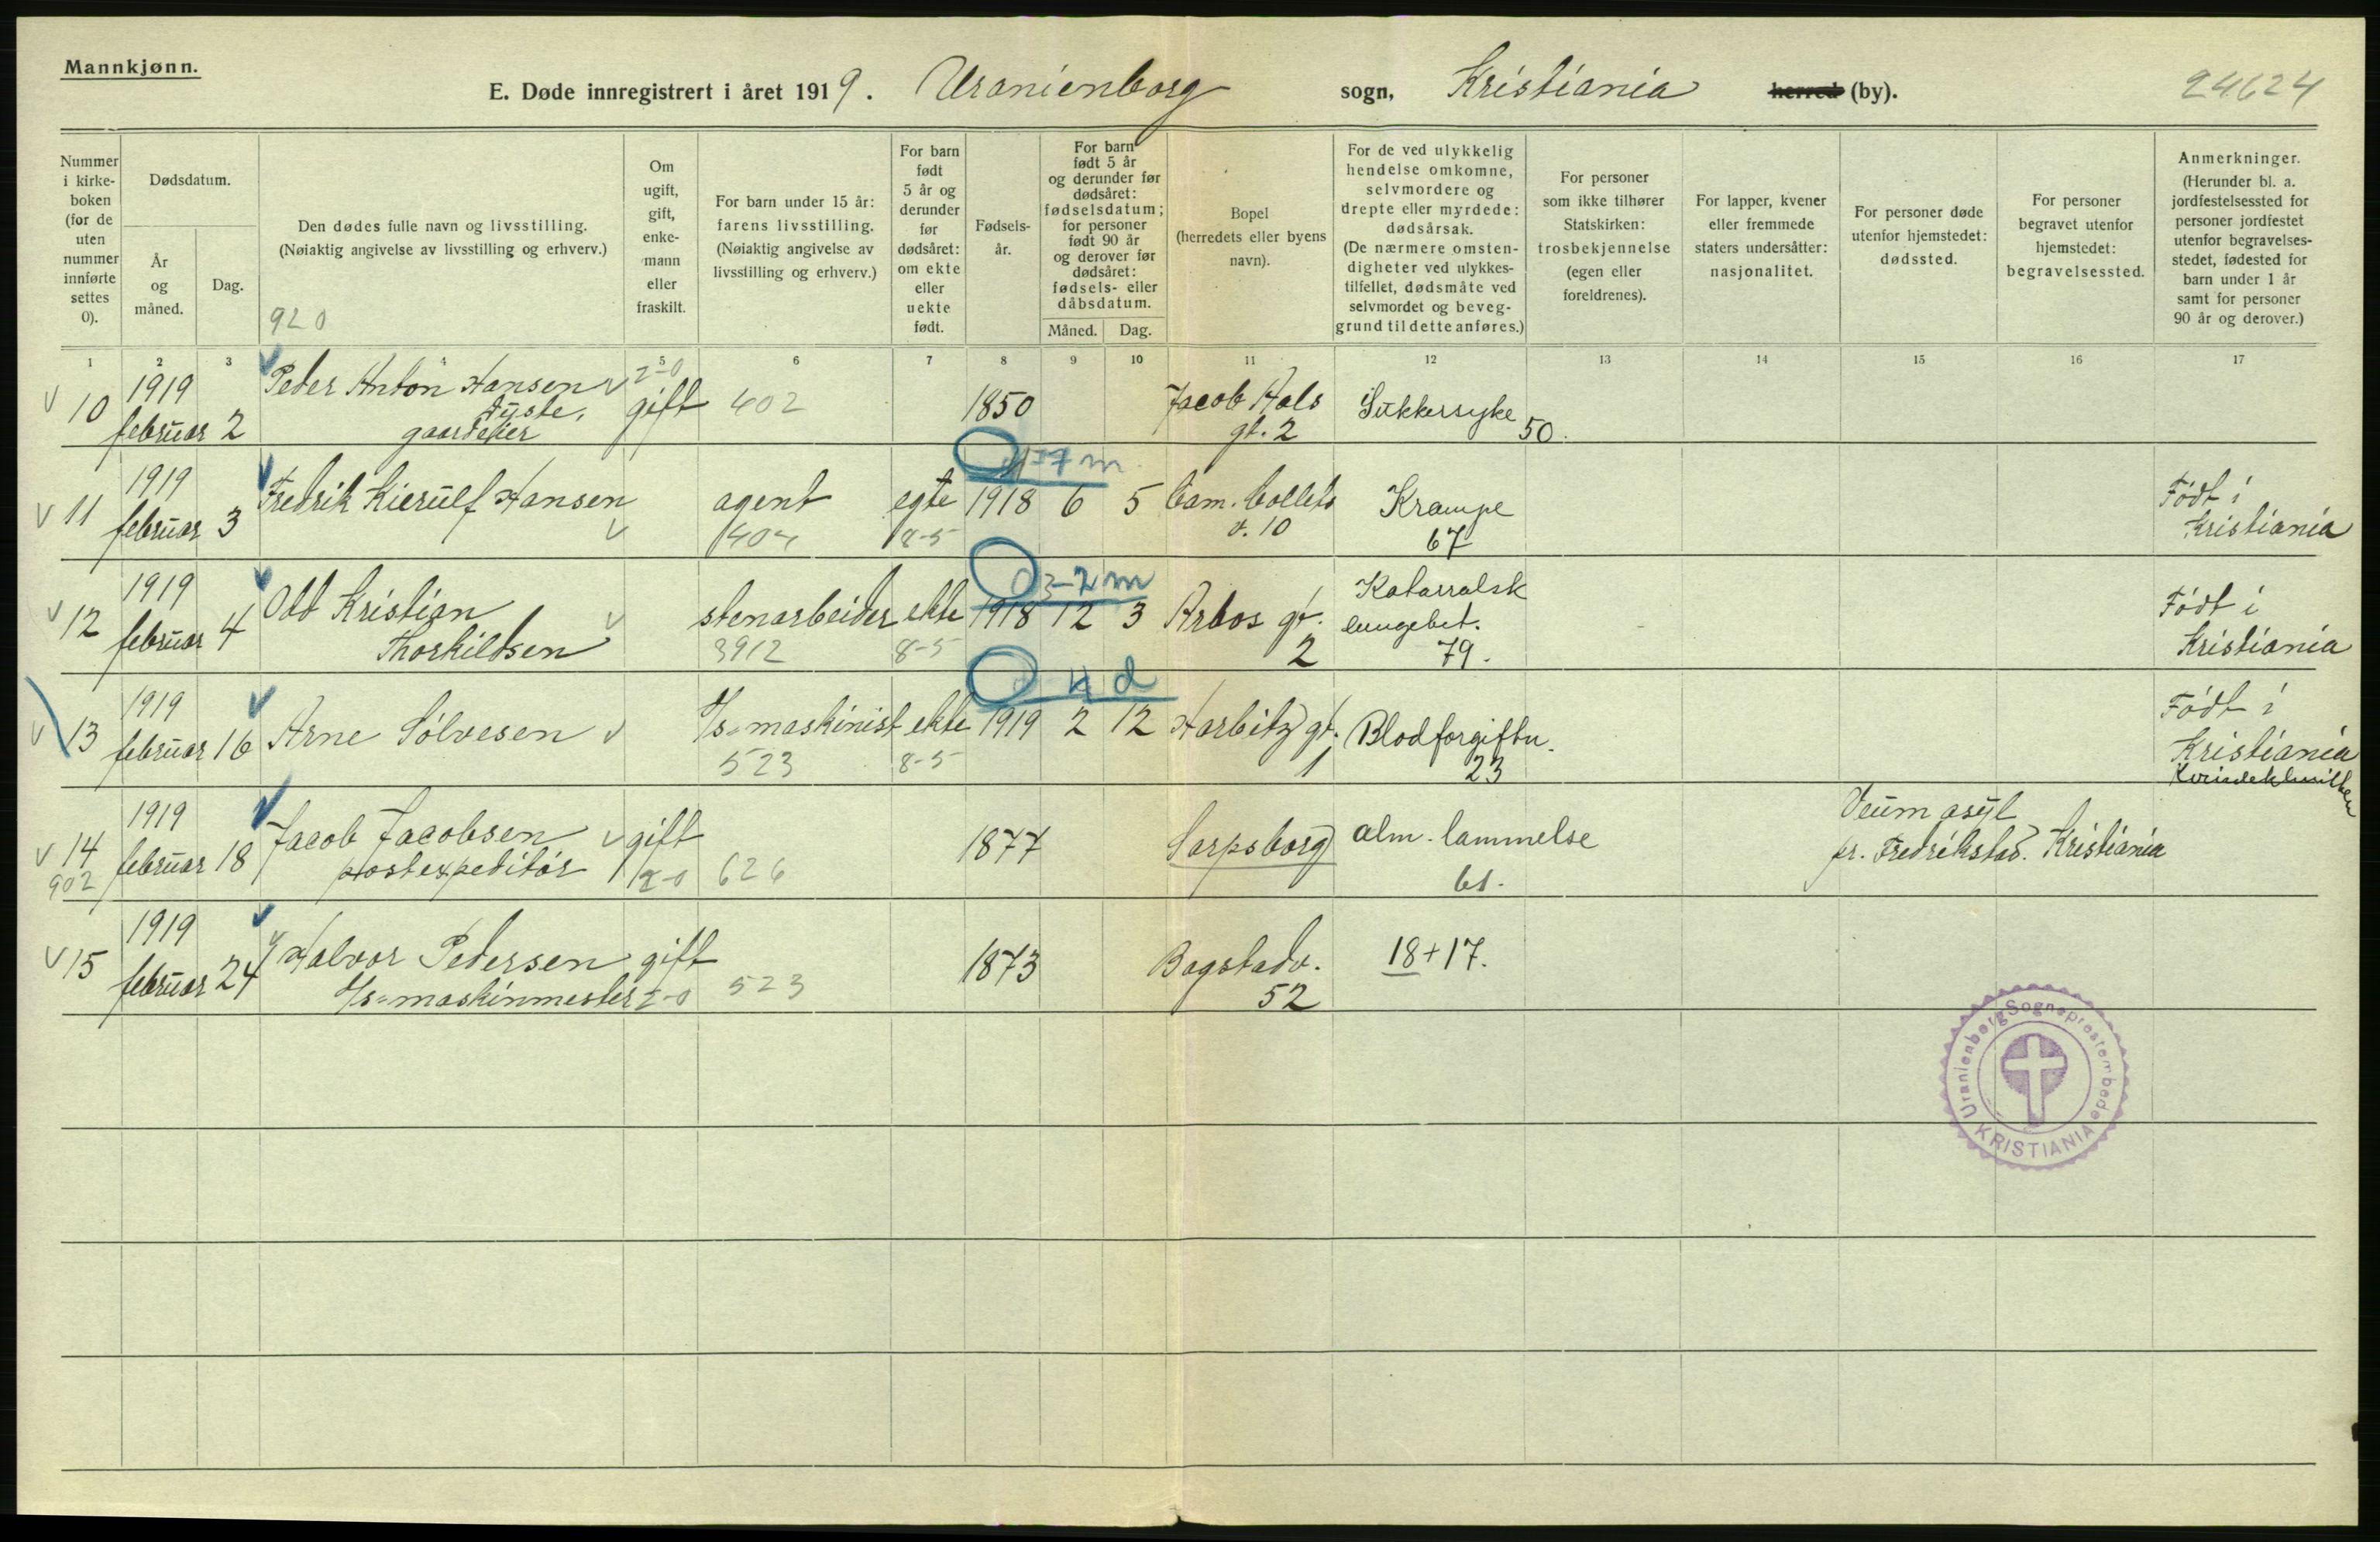 Mannkjønn.
E. Døde innregistrert i året 1919. Uranienborg sogn, Kristiania herred (by). 24624
Nummer i kirke-boken (for de uten nummer innførte settes 0).
Dødsdatum.
År og måned.
Dag.
Den dødes fulle navn og livsstilling.
(Nøiaktig angivelse av livsstilling og erhverv.)
920
Om ugift, gift, enke-mann eller fraskilt.
For barn under 15 år: farens livsstilling.
(Nøiaktig angivelse av livsstilling og erhverv.)
For barn født 5 år og derunder før dødsåret: om ekte eller uekte født.
Fødsels-år.
For barn født 5 år og derunder før dødsåret: fødselsdatum; for personer født 90 år og derover før dødsåret: fødsels- eller dåbsdatum.
Måned. Dag.
Bopel
(herredets eller byens navn).
For de ved ulykkelig hendelse omkomne, selvmordere og drepte eller myrdede: dødsårsak.
(De nærmere omsten-digheter ved ulykkes-tilfellet, dødsmåte ved selvmordet og beveg-grund til dette anføres.)
For personer som ikke tilhører Statskirken: trosbekjennelse
(egen eller foreldrenes).
For lapper, kvener eller fremmede staters undersåtter: nasjonalitet.
For personer døde utenfor hjemstedet: dødssted.
For personer begravet utenfor hjemstedet: begravelsessted.
Anmerkninger.
(Herunder bl. a. jordfestelsessted for personer jordfestet utenfor begravelses-stedet, fødested for barn under 1 år samt for personer 90 år og derover.)
1 2 3 4 5 6 7 8 9 10 11 12 13 14 15 16 17
v 10 1919 februar 2 Peder Anton Hansen v
gaardeier
2-0 gift 402 1850 Jacob Hals
gt. 2 Sukkersyke 50.
v 11 1919 februar 3 Fredrik Kierulf Hansen v
agent 404 egte 8-5 7 m 1918 6 5 Cam. Colletts
v. 10 Krampe
67 Født i
Kristiania
v 12 1919 februar 4 Odd Kristian
Thorkildsen v
stenarbeider 3912 ekte 8-5 2 m 1918 12 3 Arbos gt.
2 Katarralsk
lungebet.
79. Født i
Kristiania
v 13 1919 februar 16 Arne Sølvesen v
D/s=maskinist 523 ekte 8-5 4 d 1919 2 12 Harbitz gt.
1 Blodforgiftn.
23 Født i
Kristiania
Kvindeklinikken
v 14 902 1919 februar 18 Jacob Jacobsen v
postexpeditør
gift 2-0 626 1877 Sarpsborg alm. lammelse
61. Veum asyl
pr. Fredrikstad. Kristiania
v 15 1919 februar 24 Halvor Pedersen
D/s=maskinmester
gift 2-0 523 1873 Bogstadv.
52 18+17.
Uranienborg Sogneprestembede
KRISTIANIA